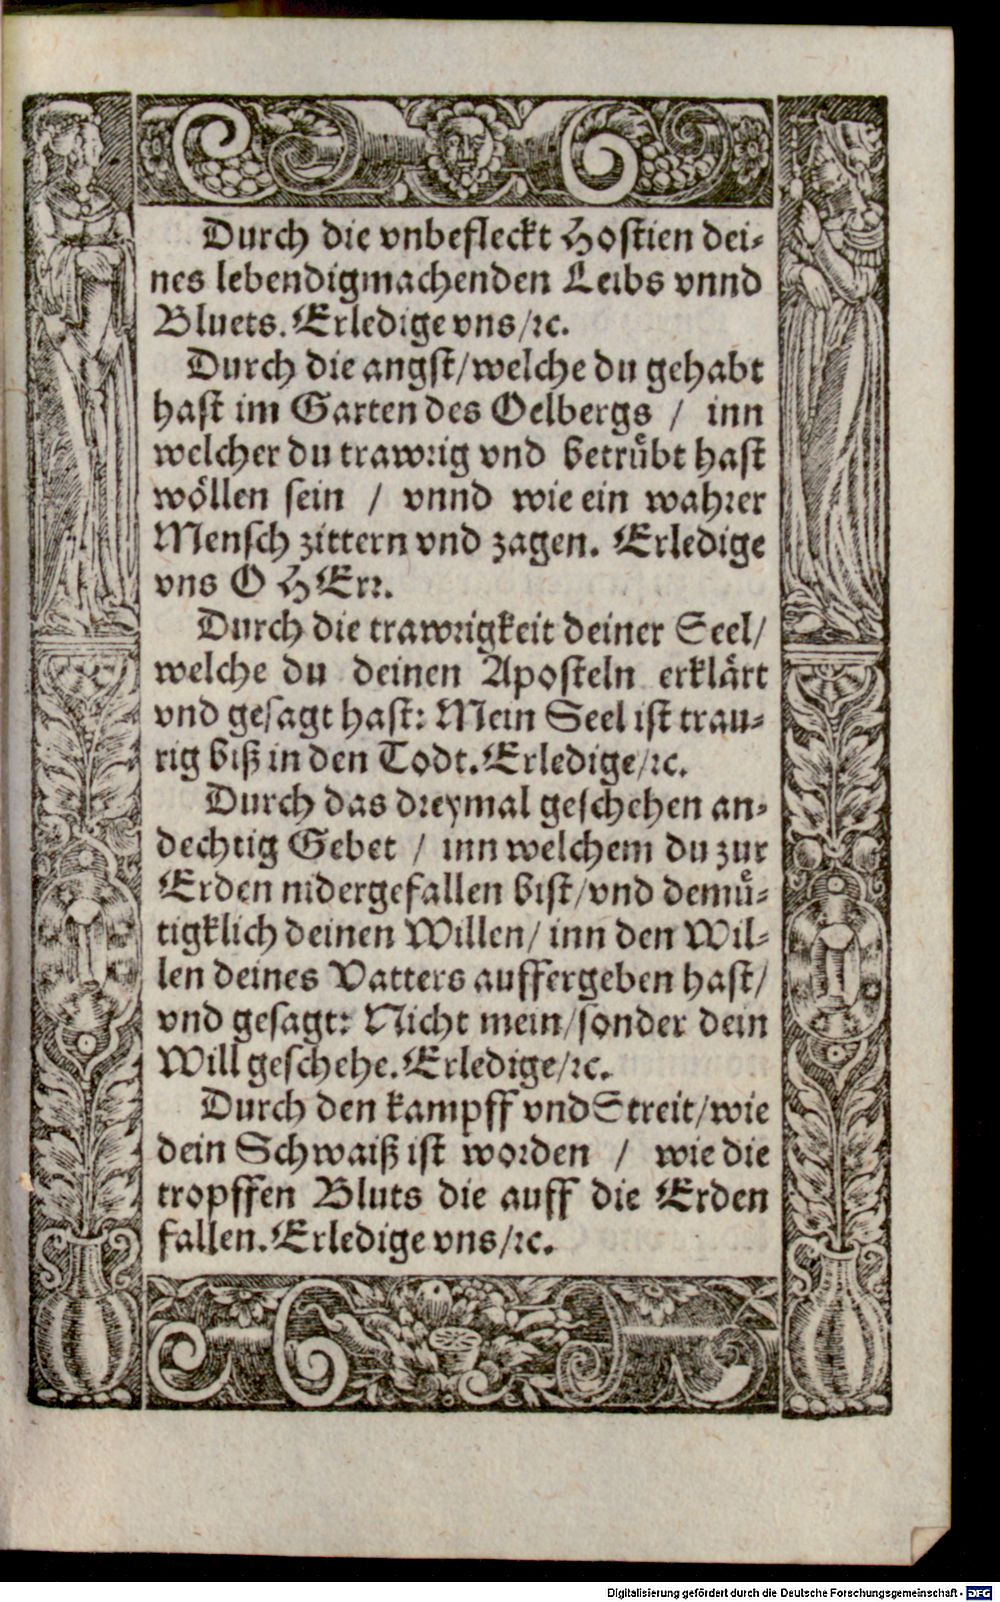 Durch die vnbefleckt Hostien dei⸗
nes lebendigmachenden Leibs vnnd
Bluets. Erledige vns/ꝛc.
Durch die angst/welche du gehabt
hast im Garten des Oelbergs / inn
welcher du trawrig vnd betrůbt hast
wöllen sein / vnnd wie ein wahrer
Mensch zittern vnd zagen. Erledige
vns O HErr.
Durch die trawrigkeit deiner Seel/
welche du deinen Aposteln erklärt
vnd gesagt hast: Mein Seel ist trau⸗
rig biß in den Todt. Erledige/ꝛc.
Durch das dreymal geschehen an⸗
dechtig Gebet / inn welchem du zur
Erden nidergefallen bist/vnd demů⸗
tigklich deinen Willen/ inn den Wil⸗
len deines Vatters auffergeben hast/
vnd gesagt: Nicht mein/sonder dein
Will geschehe. Erledige/ꝛc.
Durch den kampff vnd Streit/wie
dein Schwaiß ist worden / wie die
tropffen Bluts die auff die Erden
fallen. Erledige vns/ꝛc.
Digitalisierung gefördert durch die Deutsche Forschungsgemeinschaft - DFG